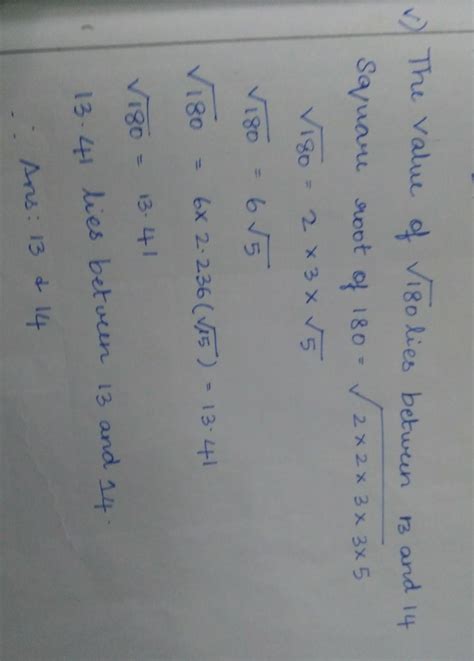 v) The value of √180 lies between 13 and 14
Square root of 180 = √2×2×3×3×5
√180 = 2 × 3 × √5
√180 = 6√5
√180 = 6×2.236(√5) = 13.41
√180 = 13.41
13.41 lies between 13 and 14.
∴ Ans: 13 & 14